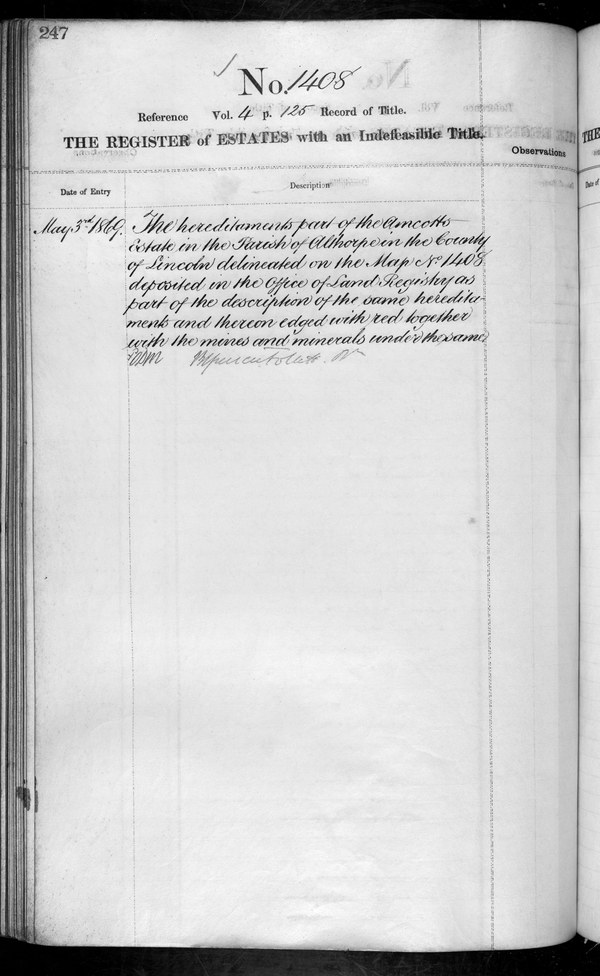 247
No. 1408
Reference Vol. 4 p. 125 Record of Title.
THE REGISTER of ESTATES with an Indefeasible Title.
Observations
Date of Entry
Description
May 3rd 1869.
The hereditaments part of the Amcotts
Estate in the Parish of Althorpe in the County
of Lincoln delineated on the Map No. 1408
deposited in the Office of Land Registry as
part of the description of the same heredita-
ments and thereon edged with red together
with the mines and minerals under the same
THE
Date of